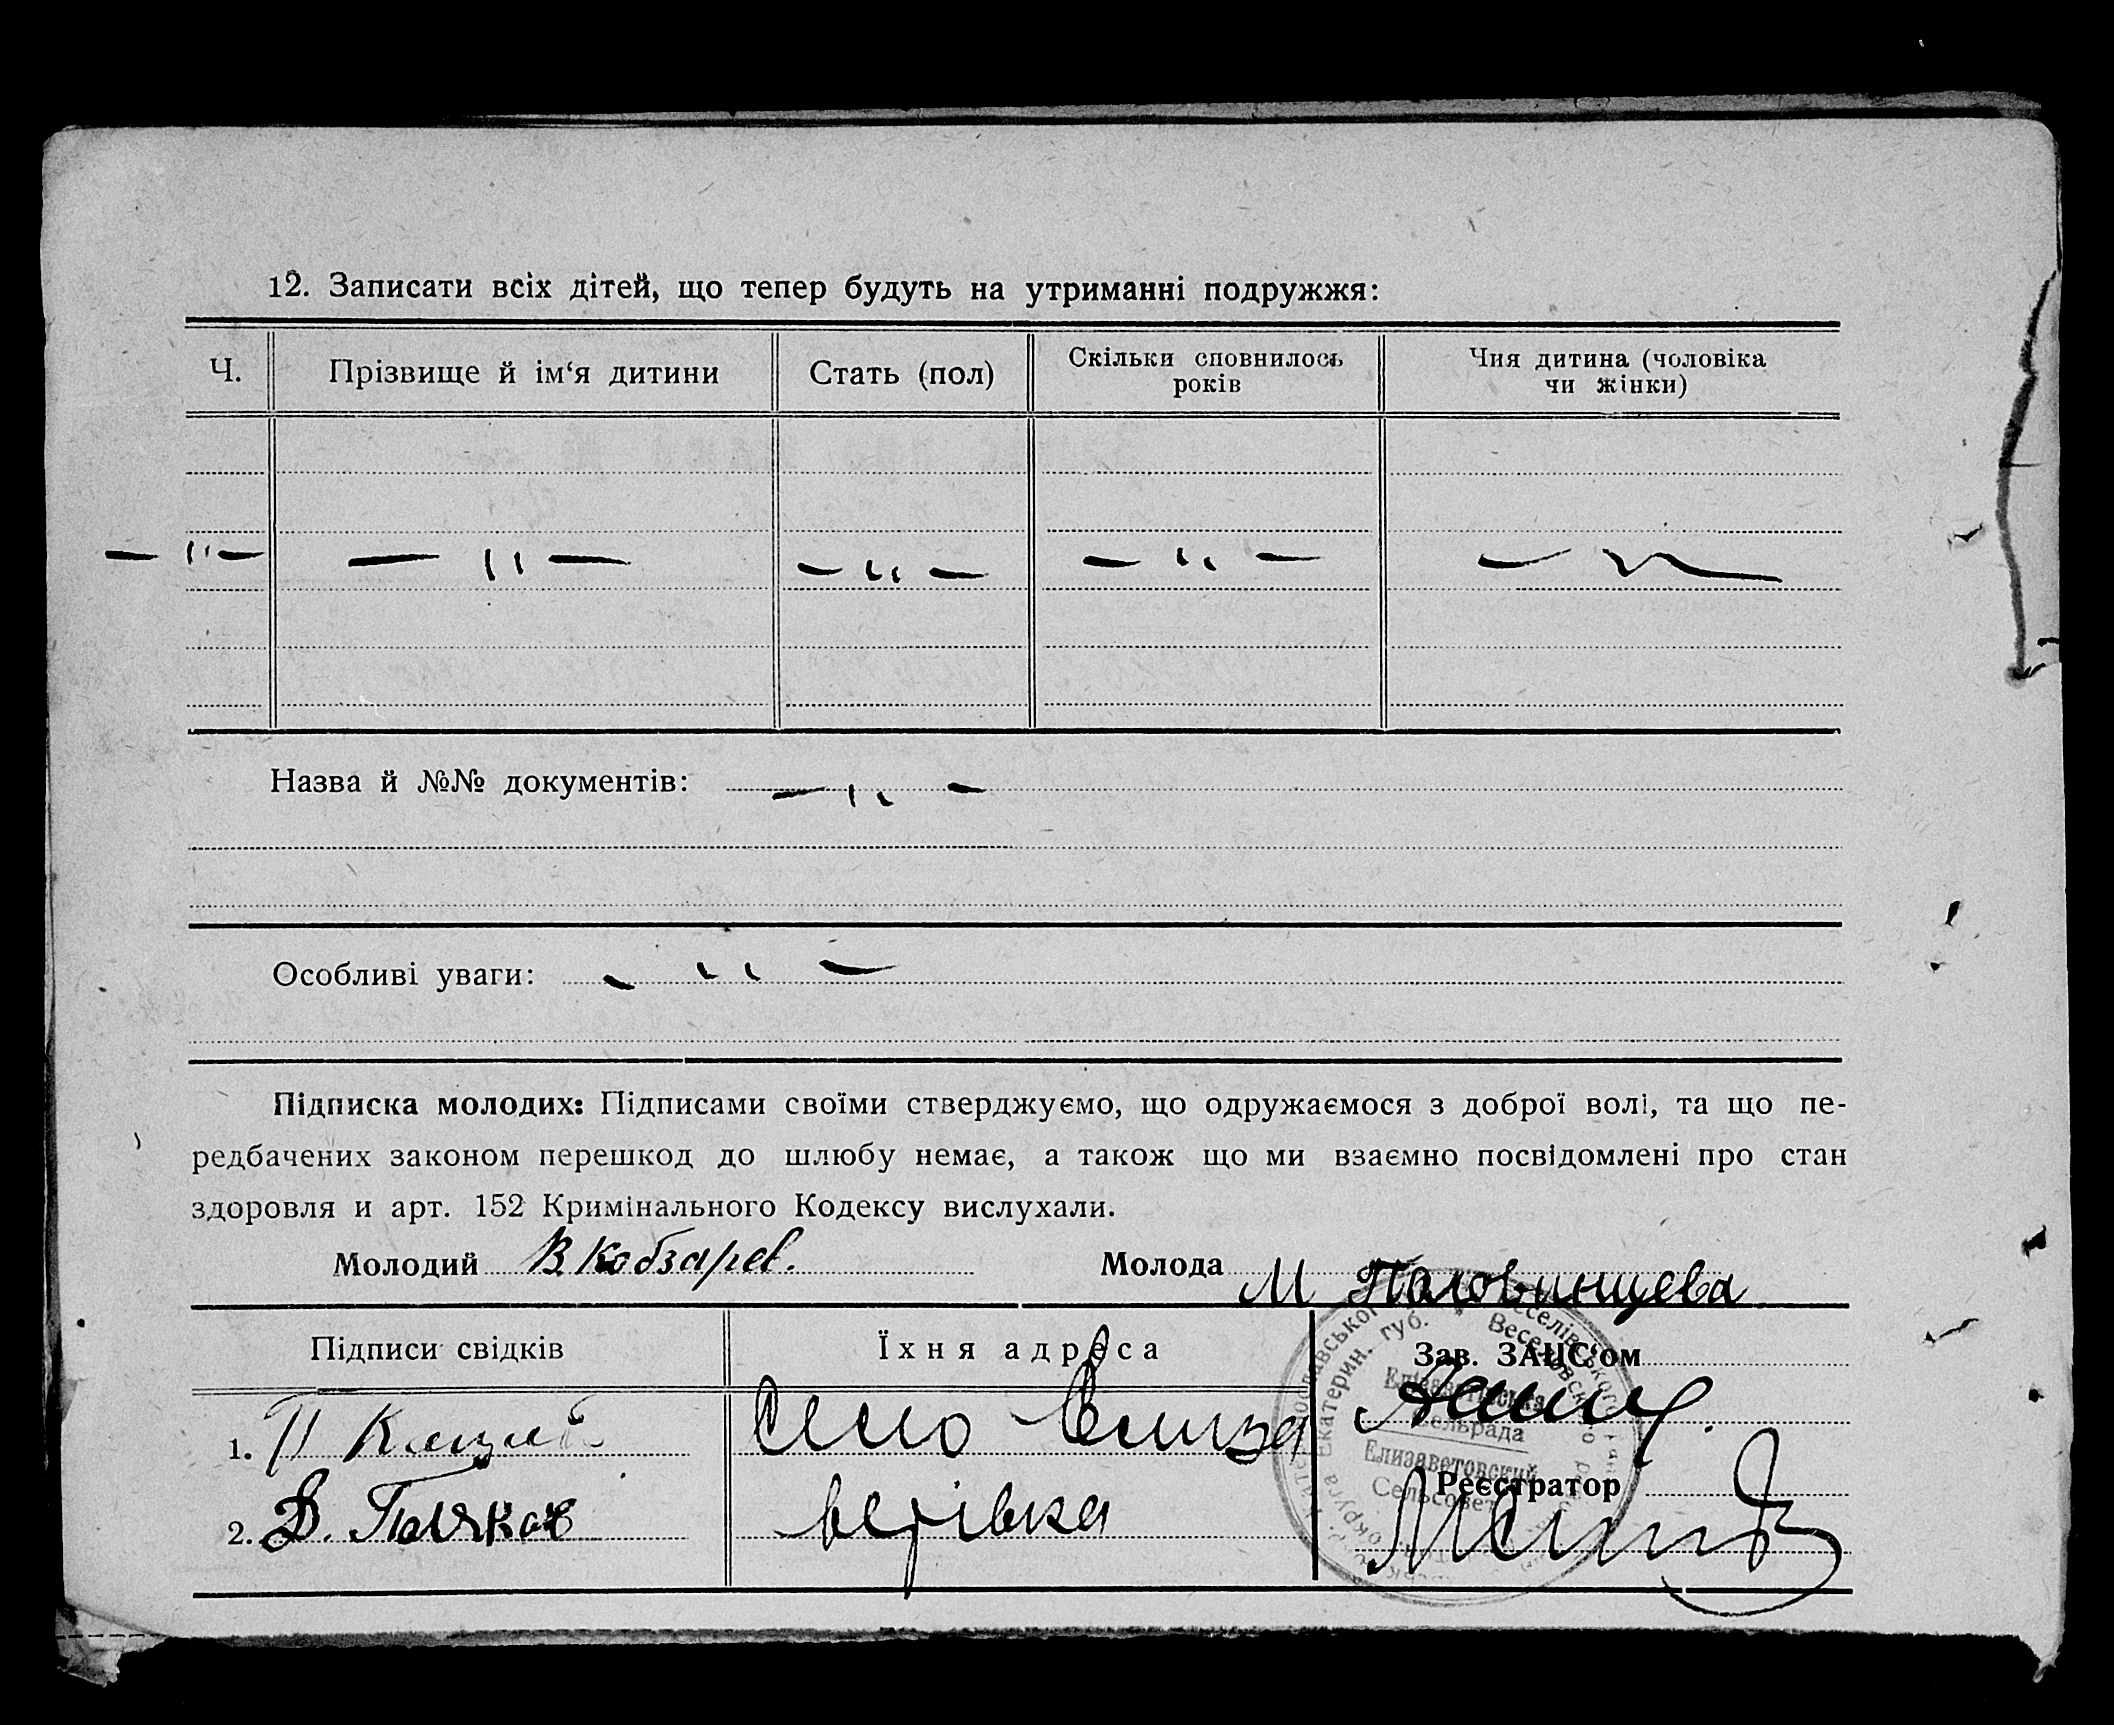 12. Записати всіх дітей, що тепер будуть на утриманні подружжя:
Ч. Прізвище й ім‘я дитини Стать (пол) Скільки сповнилось років Чия дитина (чоловіка чи жінки)
— " — — " — — " — — " — — " —
Назва й №№ документів: — " —
Особливі уваги: — " —
Підписка молодих: Підписами своїми стверджуємо, що одружаємося з доброї волі, та що пе-
редбачених законом перешкод до шлюбу немає, а також що ми взаємно посвідомлені про стан
здоровля и арт. 152 Кримінального Кодексу вислухали.
Молодий В Кобзарев. Молода М Половинщева
Підписи свідків Їхня адреса Зав. ЗАЦС‘ом
1. П Село Єлиза
Реєстратор
2. Д. Поляков ветівка
Екатерин. губ.
Сельрада
Елизаветовский
Сельсовет